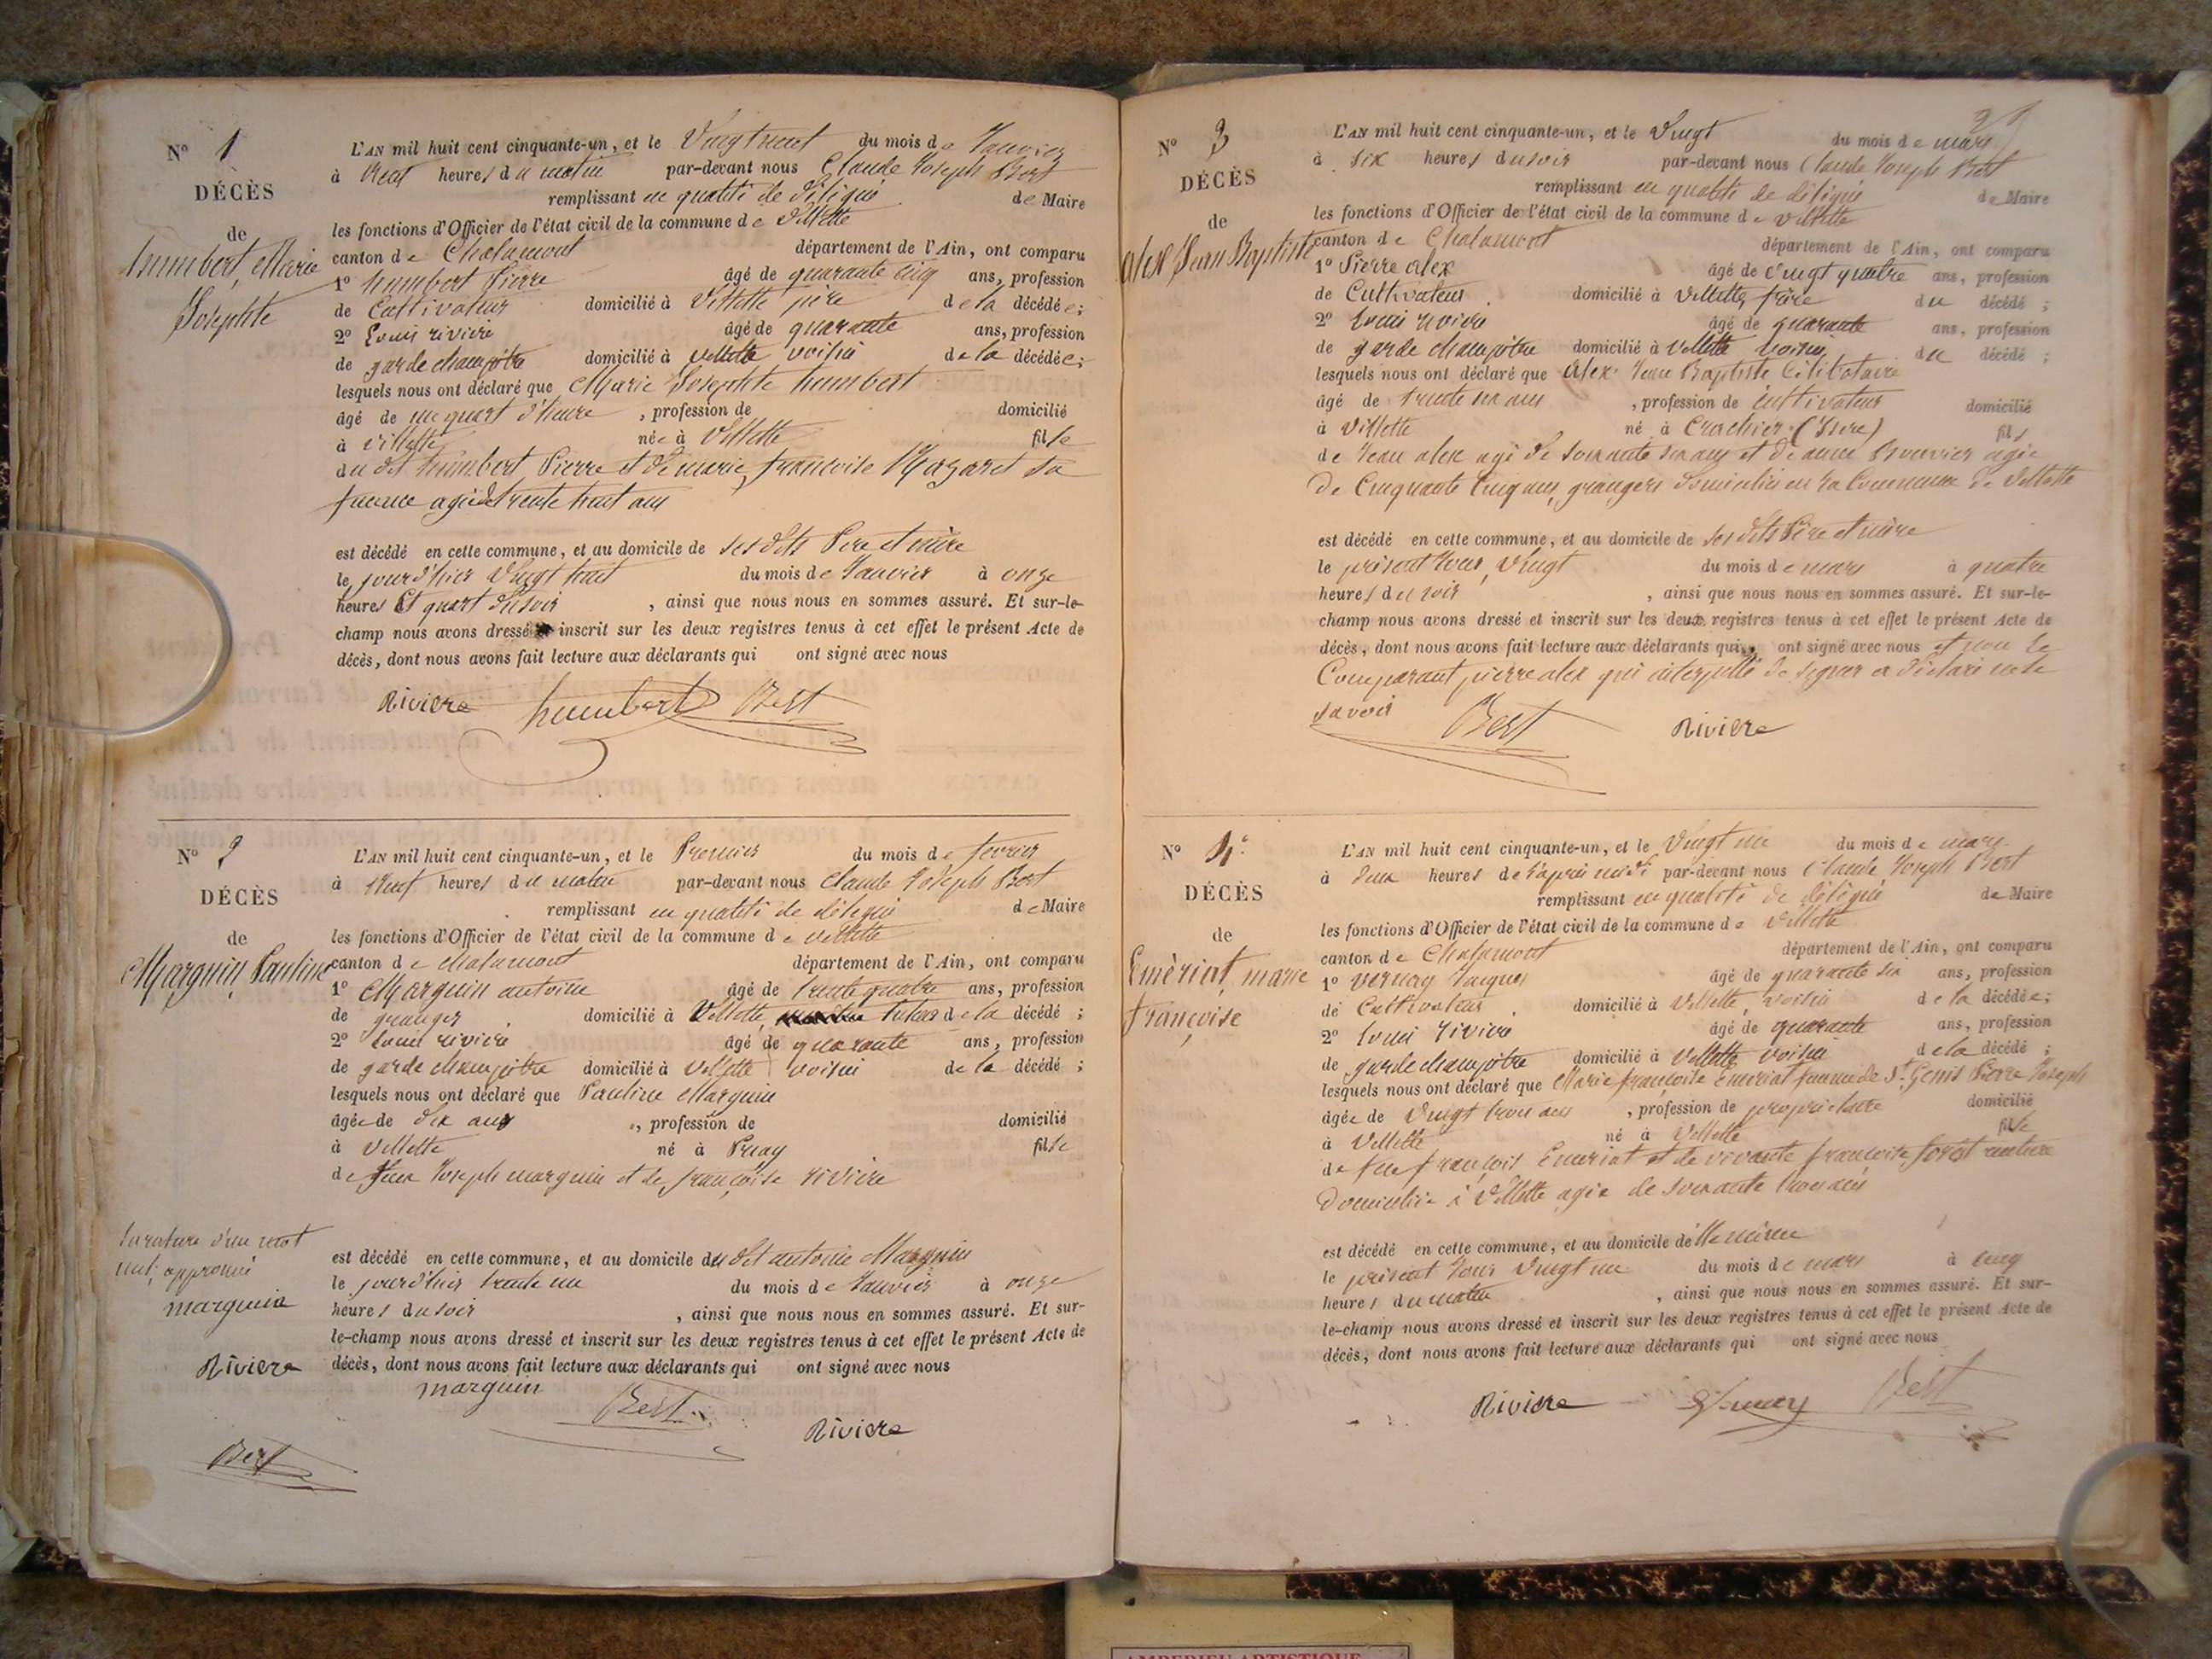 N° 1
DÉCÈS
de
humbert, Marie
Josephte
L'AN mil huit cent cinquante-un, et le Vingt neuf du mois de Janvier
à Neuf heures du matin par-devant nous Claude Joseph Bert
remplissant en qualité de délégué de Maire
les fonctions d'Officier de l'état civil de la commune de Villette
canton de Chalamont département de l'Ain, ont comparu
1° humbert Pierre âgé de quarante cinq ans, profession
de Cultivateur domicilié à Villette père de la décédée;
2° Louis riviere âgé de quarante ans, profession
de garde champêtre domicilié à Villette voisin de la décédée;
lesquels nous ont déclaré que Marie Josephte humbert
âgé de un quart d'heure, profession de domicilié
à Villette née à Villette fille
du dit humbert Pierre et de marie françoise Mazaret sa
femme agée de trente huit ans
est décédé en cette commune, et au domicile de ses dits Père et mère
le jourd'hier Vingt huit du mois de Janvier à onze
heures Et quart du soir, ainsi que nous nous en sommes assuré. Et sur-le-
champ nous avons dressé inscrit sur les deux registres tenus à cet effet le présent Acte de
décès, dont nous avons fait lecture aux déclarants qui ont signé avec nous
Riviere humbert Bert
N° 2
DÉCÈS
de
Marguin Pauline
L'AN mil huit cent cinquante-un, et le Premier du mois de fevrier
à Neuf heures du matin par-devant nous Claude Joseph Bert
remplissant en qualité de délégué de Maire
les fonctions d'Officier de l'état civil de la commune de Villette
canton de Chalamont département de l'Ain, ont comparu
1° Marguin antoine âgé de trente quatre ans, profession
de granger domicilié à Villette tuteur de la décédé;
2° Louis riviere âgé de quarante ans, profession
de garde champêtre domicilié à Villette voisin de la décédé;
lesquels nous ont déclaré que Pauline Marguin
âgée de dix ans, profession de domicilié
à Villette né à Priay fille
de feu Joseph marguin et de françoise riviere
est décédé en cette commune, et au domicile du dit antoine Marguin
le jourd'hier trente un du mois de Janvier à onze
heures du soir, ainsi que nous nous en sommes assuré. Et sur-
le-champ nous avons dressé et inscrit sur les deux registres tenus à cet effet le présent Acte de
décès, dont nous avons fait lecture aux déclarants qui ont signé avec nous
marguin Bert Riviere
d'un mot
nul, approuvé
marguin
Riviere
Bert
N° 3
DÉCÈS
de
alex Jean Baptiste
L'AN mil huit cent cinquante-un, et le Vingt du mois de mars
à six heures du soir par-devant nous Claude Joseph Bert
remplissant en qualité de délégué de Maire
les fonctions d'Officier de l'état civil de la commune de Villette
canton de Chalamont département de l'Ain, ont comparu
1° Pierre alex âgé de vingt quatre ans, profession
de Cultivateur domicilié à Villette, frère du décédé;
2° Louis riviere âgé de quarante ans, profession
de garde champêtre domicilié à Villette voisin du décédé;
lesquels nous ont déclaré que alex Jean Baptiste Célibataire
âgé de trente ans, profession de cultivateur domicilié
à Villette né à Crachier (isere) fils
de Jean alex agé de soixante ans et de anne Bouvier agée
de Cinquante Cinq ans, grangers domiciliés en la Commune de Villette
est décédé en cette commune, et au domicile de ses dits Père et mère
le présent Jour, Vingt du mois de mars à quatre
heures du soir, ainsi que nous nous en sommes assuré. Et sur-le-
champ nous avons dressé et inscrit sur les deux registres tenus à cet effet le présent Acte de
décès, dont nous avons fait lecture aux déclarants qui ont signé avec nous et non le
Comparant pierre alex qui interpellé de signer a déclaré ne le
savoir
Bert Riviere
N° 4
DÉCÈS
de
Emèriat, marie
françoise
L'AN mil huit cent cinquante-un, et le Vingt un du mois de mars
à deux heures de l'après midi par-devant nous Claude Joseph Bert
remplissant en qualité de délégué de Maire
les fonctions d'Officier de l'état civil de la commune de Villette
canton de Chalamont département de l'Ain, ont comparu
1° Vernay Jacques âgé de quarante six ans, profession
de Cultivateur domicilié à Villette, voisin de la décédée;
2° Louis riviere âgé de quarante ans, profession
de garde champêtre domicilié à Villette voisin de la décédé;
lesquels nous ont déclaré que Marie françoise Emeriat femme de St Genis Pierre Joseph
âgée de Vingt trois ans, profession de propriétaire domicilié
à Villette né à Villette fille
de feu françois Emeriat et de vivante françoise forêt rentière
domiciliée à Villette agée de soixante trois ans
est décédé en cette commune, et au domicile de elle même
le présent Jour Vingt un du mois de mars à cinq
heures du matin, ainsi que nous nous en sommes assuré. Et sur-
le-champ nous avons dressé et inscrit sur les deux registres tenus à cet effet le présent Acte de
décès, dont nous avons fait lecture aux déclarants qui ont signé avec nous
Riviere Bert
AMBERIEU ARTISTIQUE